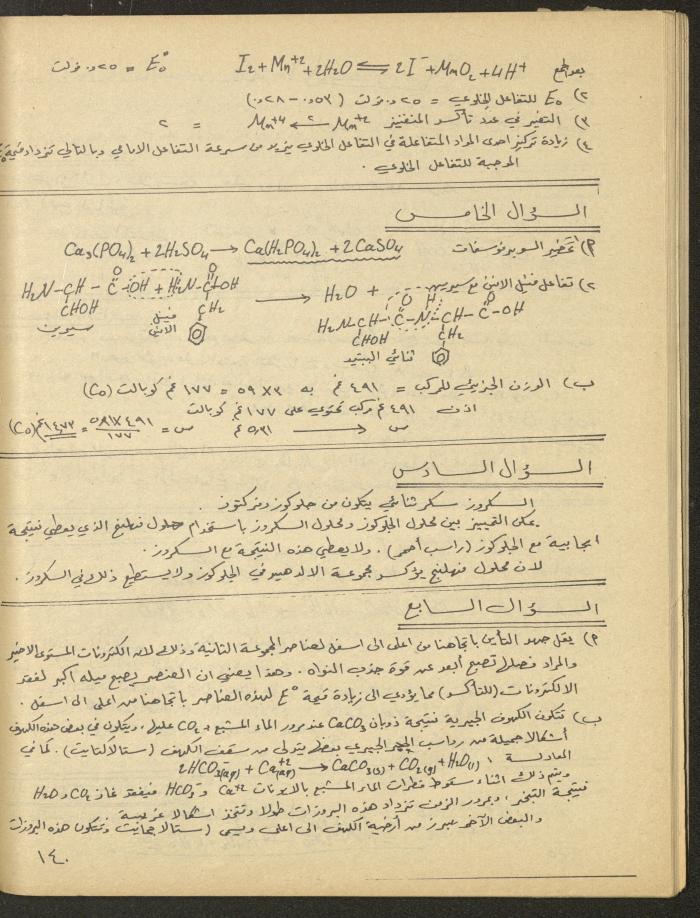 بعد الجمع I₂ + Mn⁺² + 2H₂O ⇌ 2I⁻ + MnO₂ + 4H⁺ E°₀ = ٠٫٢٥ فولت
٢) E₀ للتفاعل الخلوي = ٠٫٢٥ فولت (٠٫٥٣ - ٠٫٢٨)
٣) التغير في عدد تأكسد المنغنيز Mn⁺² ← Mn⁺⁴ = ٢
٤) زيادة تركيز احدى المواد المتفاعلة في التفاعل الخلوي يزيد من سرعة التفاعل الامامي وبالتالي تزداد قيمة
الموجبة للتفاعل الخلوي .
السؤال الخامس
٢) أ تحضير السوبرفوسفات Ca₃(PO₄)₂ + 2H₂SO₄ → Ca(H₂PO₄)₂ + 2CaSO₄
٢) تفاعل فنيل الانين مع سيرين
H₂N-CH-C-OH + H₂N-C-OH → H₂O +
O O
CHOH CH₂
سيرين فنيل الانين
H₂N-CH-C-N-CH-C-OH
O H O
CHOH CH₂
ثنائي الببتيد
ب) الوزن الجزيئي للمركب = ٤٩١ غم به ٣ × ٥٩ = ١٧٧ غم كوبالت (Co)
اذن ٤٩١ غم مركب تحتوي على ١٧٧ غم كوبالت
س → ٥٫٣١ غم س = ٤٩١ × ٥٫٣١ / ١٧٧ = ١٤٫٧٣ غم (Co)
السؤال السادس
السكروز سكر ثنائي يتكون من جلوكوز وفركتوز .
يمكن التمييز بين محلول الجلوكوز ومحلول السكروز باستخدام محلول فهلنج الذي يعطي نتيجة
ايجابية مع الجلوكوز (راسب أحمر) . ولا يعطي هذه النتيجة مع السكروز .
لان محلول فهلنج يؤكسد مجموعة الالدهيد في الجلوكوز ولا يستطيع ذلك في السكروز .
السؤال السابع
٢) يقل جهد التأين باتجاهنا من اعلى الى اسفل لعناصر المجموعة الثانية وذلك لان الكترونات المستوى الاخير
والمراد فصلها تصبح أبعد عن قوة جذب النواه . وهذا يعني ان العنصر يصبح ميله اكبر لفقد
الالكترونات (للتأكسد) مما يؤدي الى زيادة قيمة E° لهذه العناصر باتجاهنا من اعلى الى اسفل .
ب) تتكون الكهوف الجيرية نتيجة ذوبان CaCO₃ عند مرور الماء المشبع بـ CO₂ عليها ، ويتكون في بعض هذه الكهوف
أشكالا جميلة من رواسب الحجر الجيري بعضها يتدلى من سقف الكهف (ستالاكتايت) . كما في
المعادلة : 2HCO₃⁻(aq) + Ca⁺²(aq) → CaCO₃(s) + CO₂(g) + H₂O(l)
ويتم ذلك اثناء سقوط قطرات الماء المشبع بالايونات Ca⁺² و HCO₃⁻ فيفقد غاز CO₂ و H₂O
نتيجة التبخر ، وبمرور الزمن تزداد هذه البروزات طولا وتتخذ اشكالا
والبعض الآخر يبرز من أرضية الكهف الى اعلى ويسمى (ستالاجمايت) وتتكون هذه البروزات
١٤٠